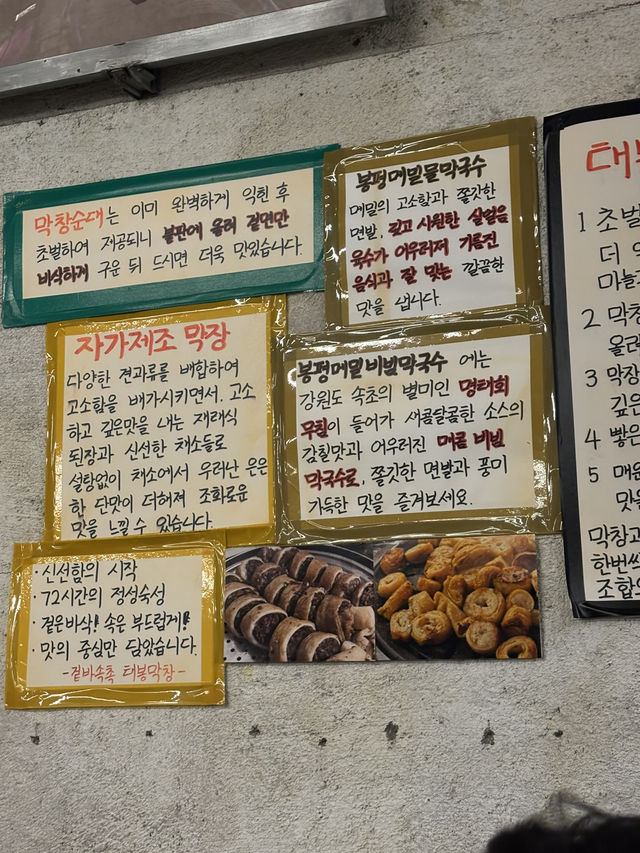 막창순대는 이미 완벽하게 익힌 후
초벌하여 제공되니 불판에 올려 겉면만
바싹하게 구운 뒤 드시면 더욱 맛있습니다.
봉평메밀물막국수
메밀의 고소함과 쫄깃한
면발, 깊고 시원한 살얼음
육수가 어우러져 기름진
음식과 잘 맞는 깔끔한
맛을 냅니다.
자가제조 막장
다양한 견과류를 배합하여
고소함을 배가시키면서, 고소
하고 깊은맛을 내는 재래식
된장과 신선한 채소들로
설탕없이 채소에서 우러난 은은
한 단맛이 더해져 조화로운
맛을 느낄 수 있습니다.
봉평메밀비빔막국수 에는
강원도 속초의 별미인 명태회
무침이 들어가 새콤달콤한 소스의
감칠맛과 어우러진 매콤 비빔
막국수로, 쫄깃한 면발과 풍미
가득한 맛을 즐겨보세요.
· 신선함의 시작
· 72시간의 정성숙성
· 겉은바삭! 속은 부드럽게!
· 맛의 중심만 담았습니다.
- 겉바속촉 태봉막창 -
1 초벌
더
마늘
2 막창
올려
3 막장
깊은
4 빻은
5 매운
맛
막창과
한번쌈
조합